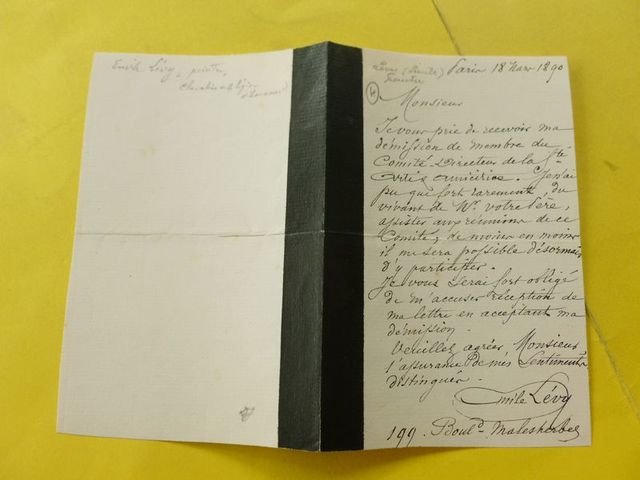 Emile Lévy, peintre,
Chevalier de la Légion
d'honneur
Lévy (Emile)
Peintre
Paris 18 Mars 1890
4
Monsieur
Je vous prie de recevoir ma
démission de membre du
Comité Directeur de la Sté
Je n'ai
pu que fort rarement, du
vivant de Mr. votre Père,
assister aux réunions de ce
Comité; de moins en moins
il me sera possible désormais
d'y participer.
Je vous serai fort obligé
de m'accuser réception de
ma lettre en acceptant ma
démission.
Veuillez agréer Monsieur
l'assurance de mes sentiments
distingués.
Emile Lévy
199. Bould. Malesherbes